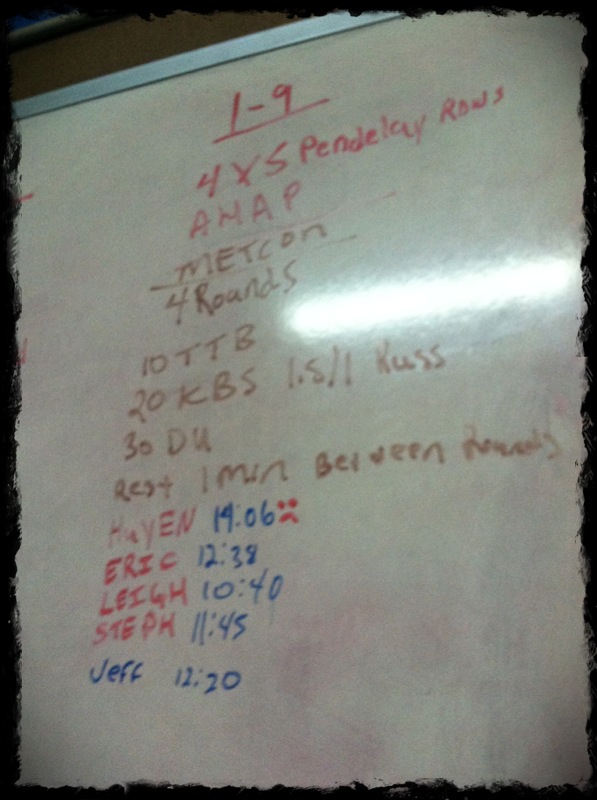 1-9
4 X 5 Pendelay Rows
AHAP
METCON
4 Rounds
10 TTB
20 KBS 1.5/1 Russ
30 DU
Rest 1 min Between Rounds
HuyEN 14:06
ERIC 12:38
LEIGH 10:40
STEPH 11:45
Jeff 12:20